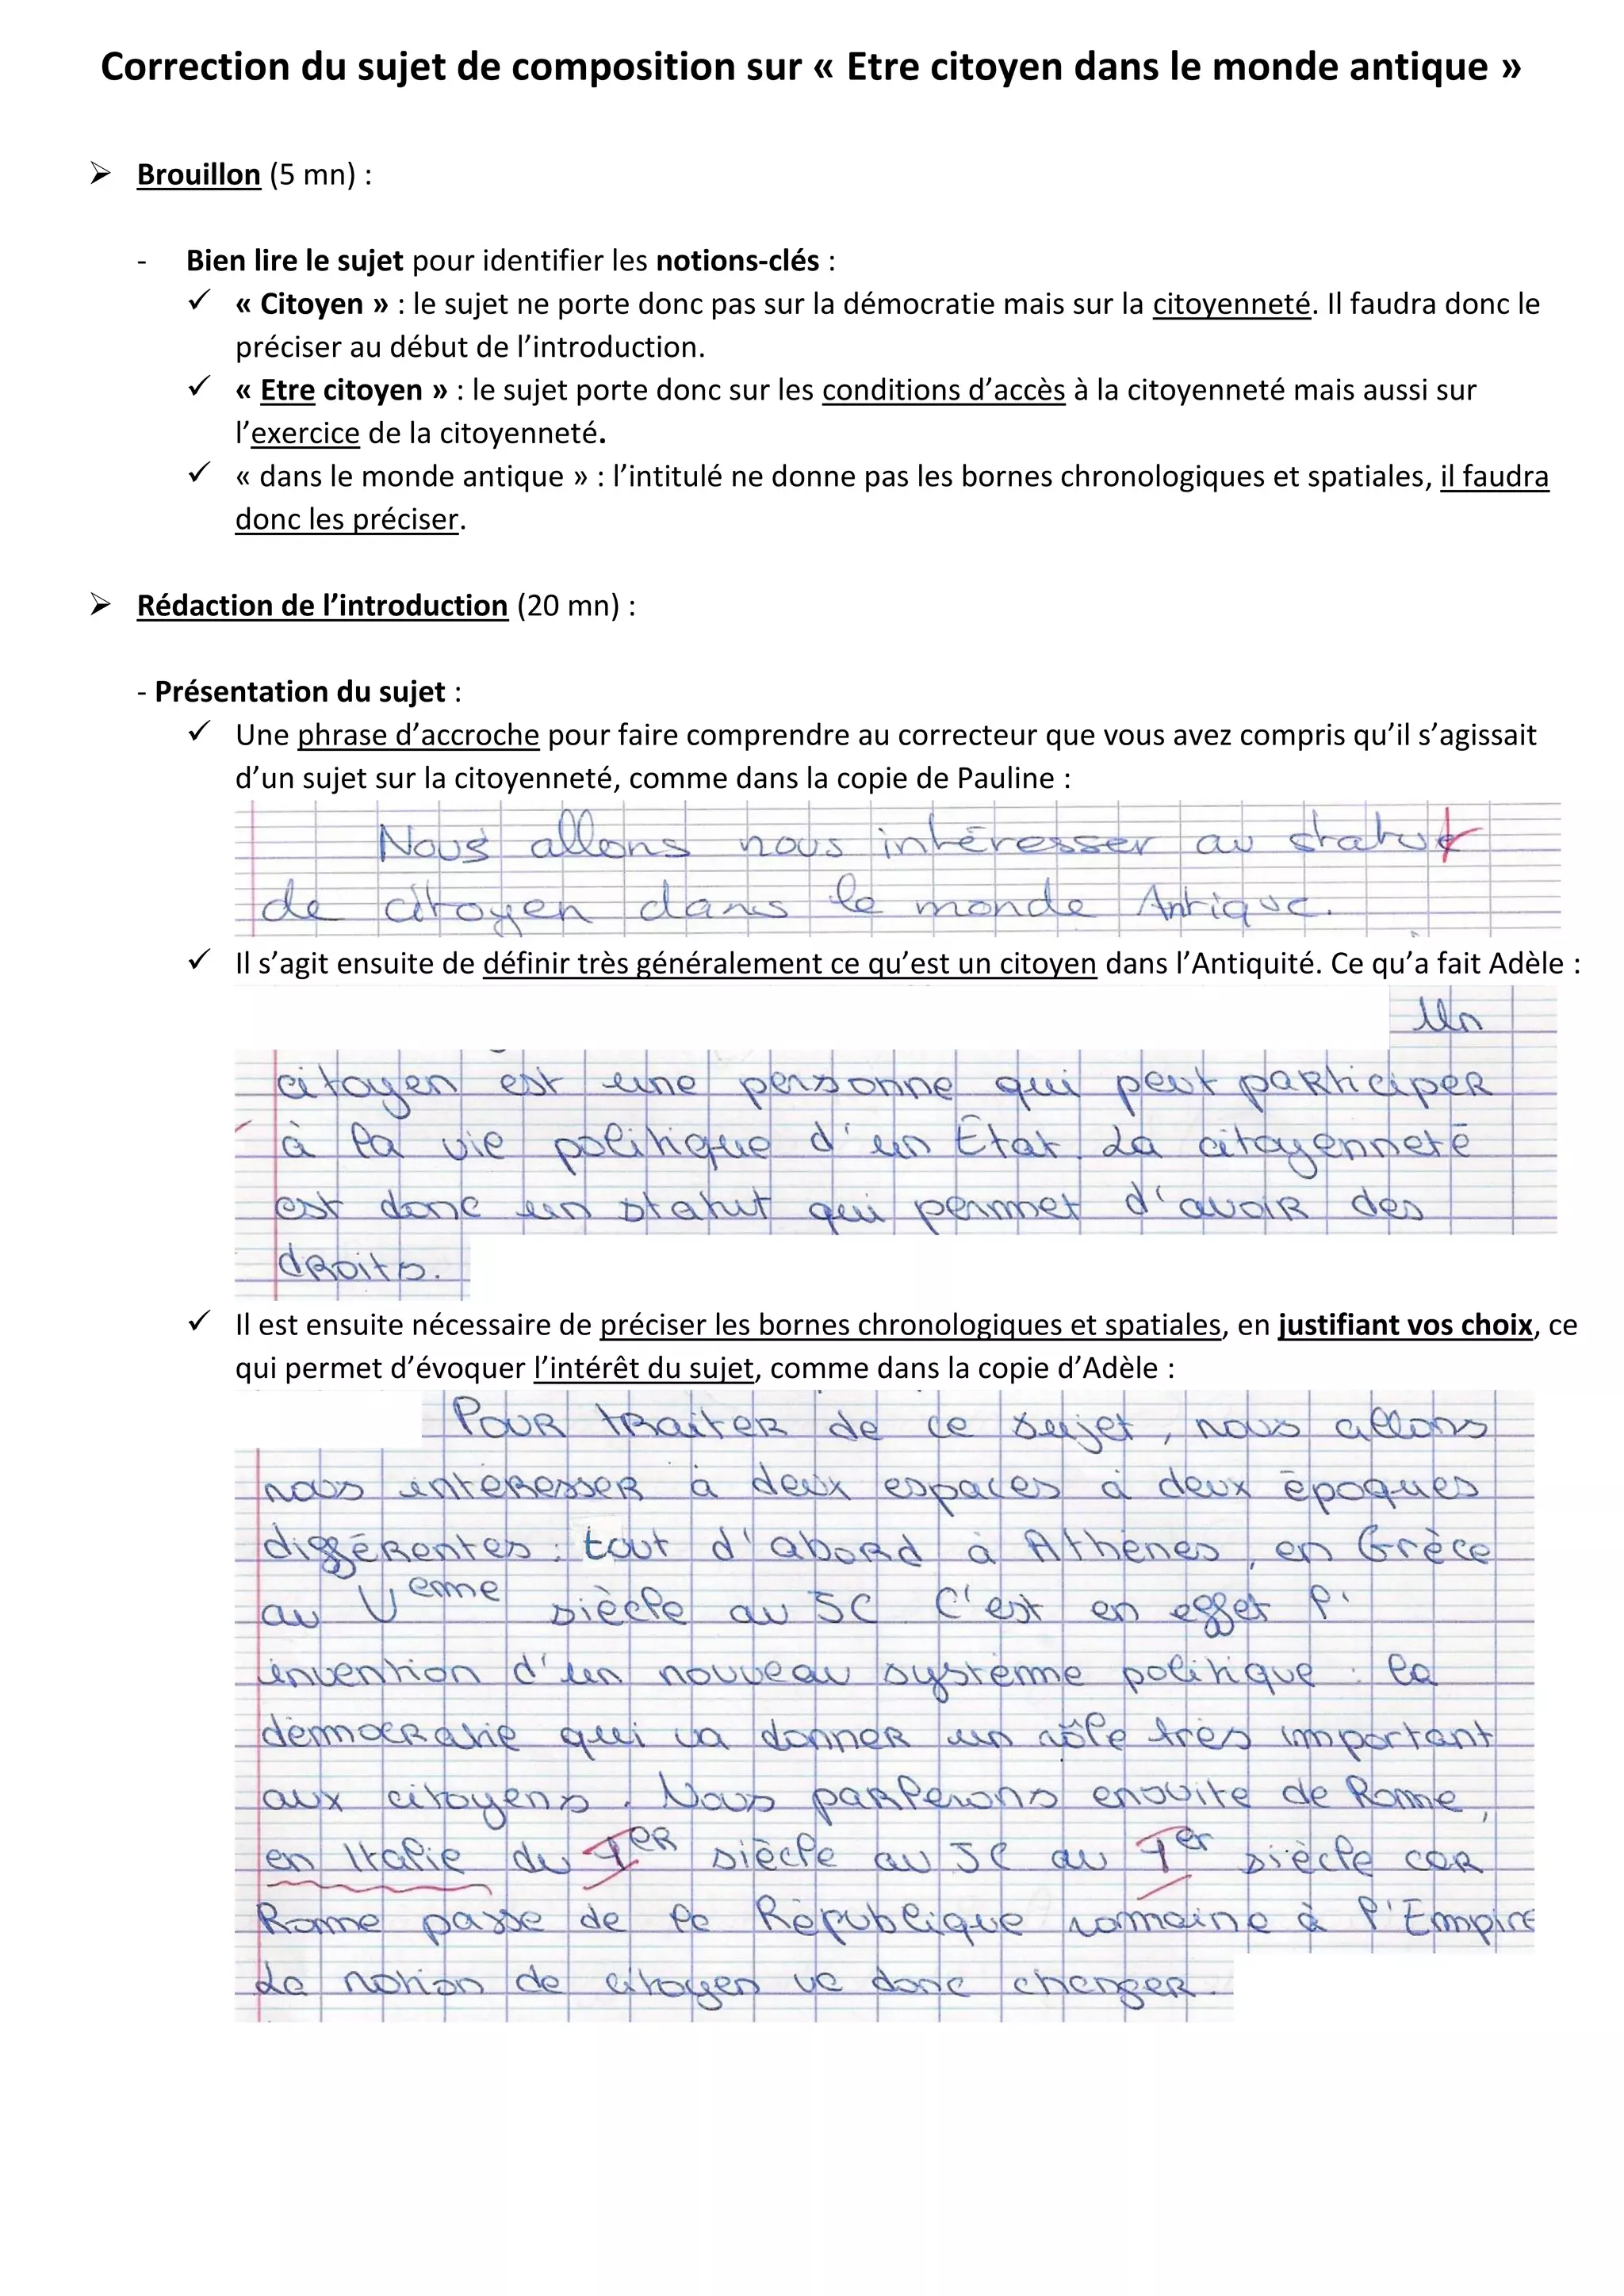 Correction du sujet de composition sur « Etre citoyen dans le monde antique »
➢ Brouillon (5 mn) :
- Bien lire le sujet pour identifier les notions-clés :
✓ « Citoyen » : le sujet ne porte donc pas sur la démocratie mais sur la citoyenneté. Il faudra donc le
préciser au début de l’introduction.
✓ « Etre citoyen » : le sujet porte donc sur les conditions d’accès à la citoyenneté mais aussi sur
l’exercice de la citoyenneté.
✓ « dans le monde antique » : l’intitulé ne donne pas les bornes chronologiques et spatiales, il faudra
donc les préciser.
➢ Rédaction de l’introduction (20 mn) :
- Présentation du sujet :
✓ Une phrase d’accroche pour faire comprendre au correcteur que vous avez compris qu’il s’agissait
d’un sujet sur la citoyenneté, comme dans la copie de Pauline :
Nous allons nous intéresser au statut
de citoyen dans le monde Antique.
✓ Il s’agit ensuite de définir très généralement ce qu’est un citoyen dans l’Antiquité. Ce qu’a fait Adèle :
Un
citoyen est une personne qui peut participer
à la vie politique d'un État. La citoyenneté
est donc un statut qui permet d'avoir des
droits.
✓ Il est ensuite nécessaire de préciser les bornes chronologiques et spatiales, en justifiant vos choix, ce
qui permet d’évoquer l’intérêt du sujet, comme dans la copie d’Adèle :
Pour traiter de ce sujet, nous allons
nous intéresser à deux espaces à deux époques
différentes : tout d'abord à Athènes, en Grèce
au Vème siècle av JC. C'est en effet l'
invention d'un nouveau système politique : la
démocratie qui va donner un rôle très important
aux citoyens. Nous parlerons ensuite de Rome,
en Italie du Ier siècle av JC au Ier siècle car
Rome passe de la République romaine à l'Empire
La notion de citoyen va donc changer.